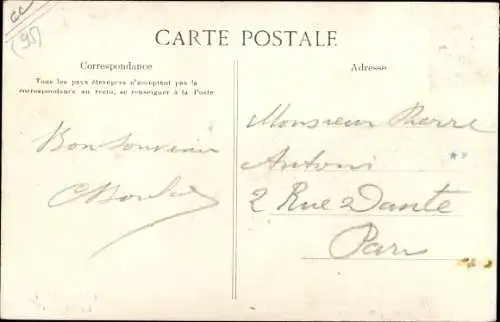 CC
(95)
CARTE POSTALE
Correspondance
Tous les pays étrangers n'acceptant pas la
correspondance au recto, se renseigner à la Poste
Bon Souvenir
Adresse
Monsieur Pierre
Antoni
2 Rue Dante
Paris